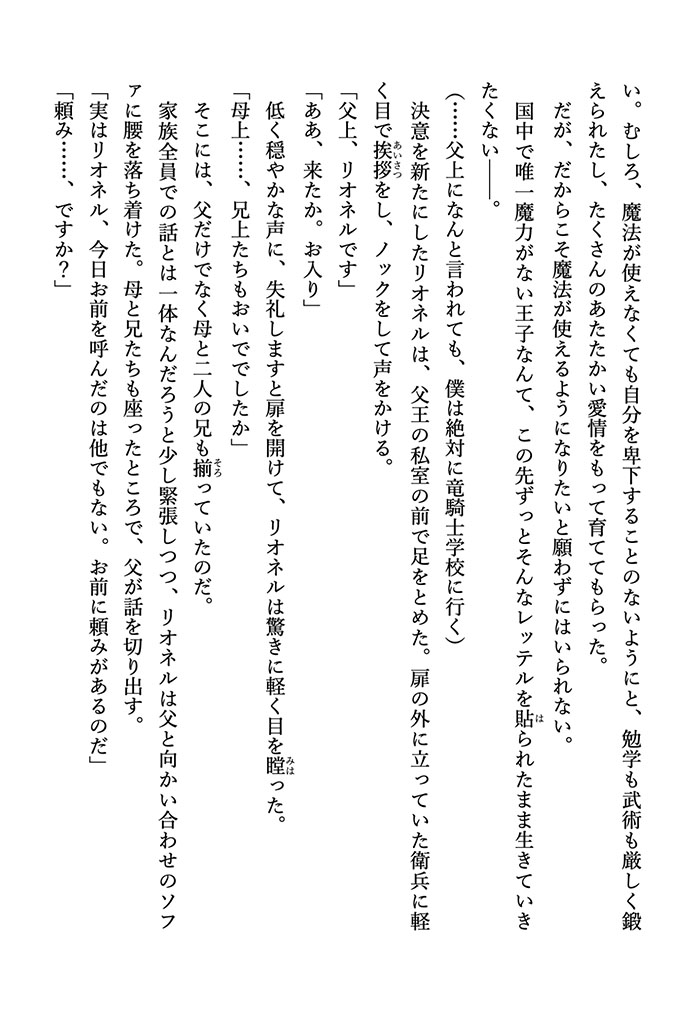 い。むしろ、魔法が使えなくても自分を卑下することのないようにと、勉学も武術も厳しく鍛
えられたし、たくさんのあたたかい愛情をもって育ててもらった。
だが、だからこそ魔法が使えるようになりたいと願わずにはいられない。
国中で唯一魔力がない王子なんて、この先ずっとそんなレッテルを貼られたまま生きていき
たくない――。
（……父上になんと言われても、僕は絶対に竜騎士学校に行く）
決意を新たにしたリオネルは、父王の私室の前で足をとめた。扉の外に立っていた衛兵に軽
く目で挨拶をし、ノックをして声をかける。
「父上、リオネルです」
「ああ、来たか。お入り」
低く穏やかな声に、失礼しますと扉を開けて、リオネルは驚きに軽く目を瞠った。
「母上……、兄上たちもおいででしたか」
そこには、父だけでなく母と二人の兄も揃っていたのだ。
家族全員での話とは一体なんだろうと少し緊張しつつ、リオネルは父と向かい合わせのソフ
ァに腰を落ち着けた。母と兄たちも座ったところで、父が話を切り出す。
「実はリオネル、今日お前を呼んだのは他でもない。お前に頼みがあるのだ」
「頼み……、ですか？」